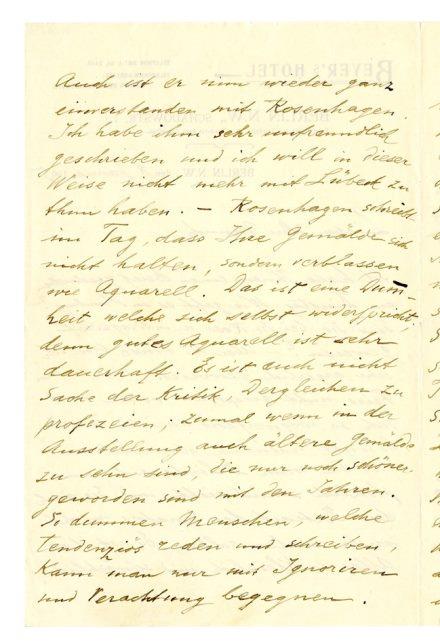 Auch ist er nun wieder ganz
einverstanden mit Rosenhagen.
Ich habe ihm sehr unfreundlich
geschrieben und ich will in dieser
Weise nicht mehr mit Lübeck zu
thun haben. – Rosenhagen schreibt
im Tag, dass Ihre Gemälde sich
nicht halten, sondern verblassen
wie Aquarell. Das ist eine Dum-
heit, welche sich selbst widerspricht,
denn gutes Aquarell ist sehr
dauerhaft. Es ist auch nicht
Sache der Kritik, Dergleichen zu
profezeien; zumal wenn in der
Ausstellung auch ältere Gemälde
zu sehn sind, die nur noch schöner
geworden sind mit den Jahren.
So dummen Menschen, welche
tendenziös reden und schreiben,
kann man nur mit Ignoriren
und Verachtung begegnen.